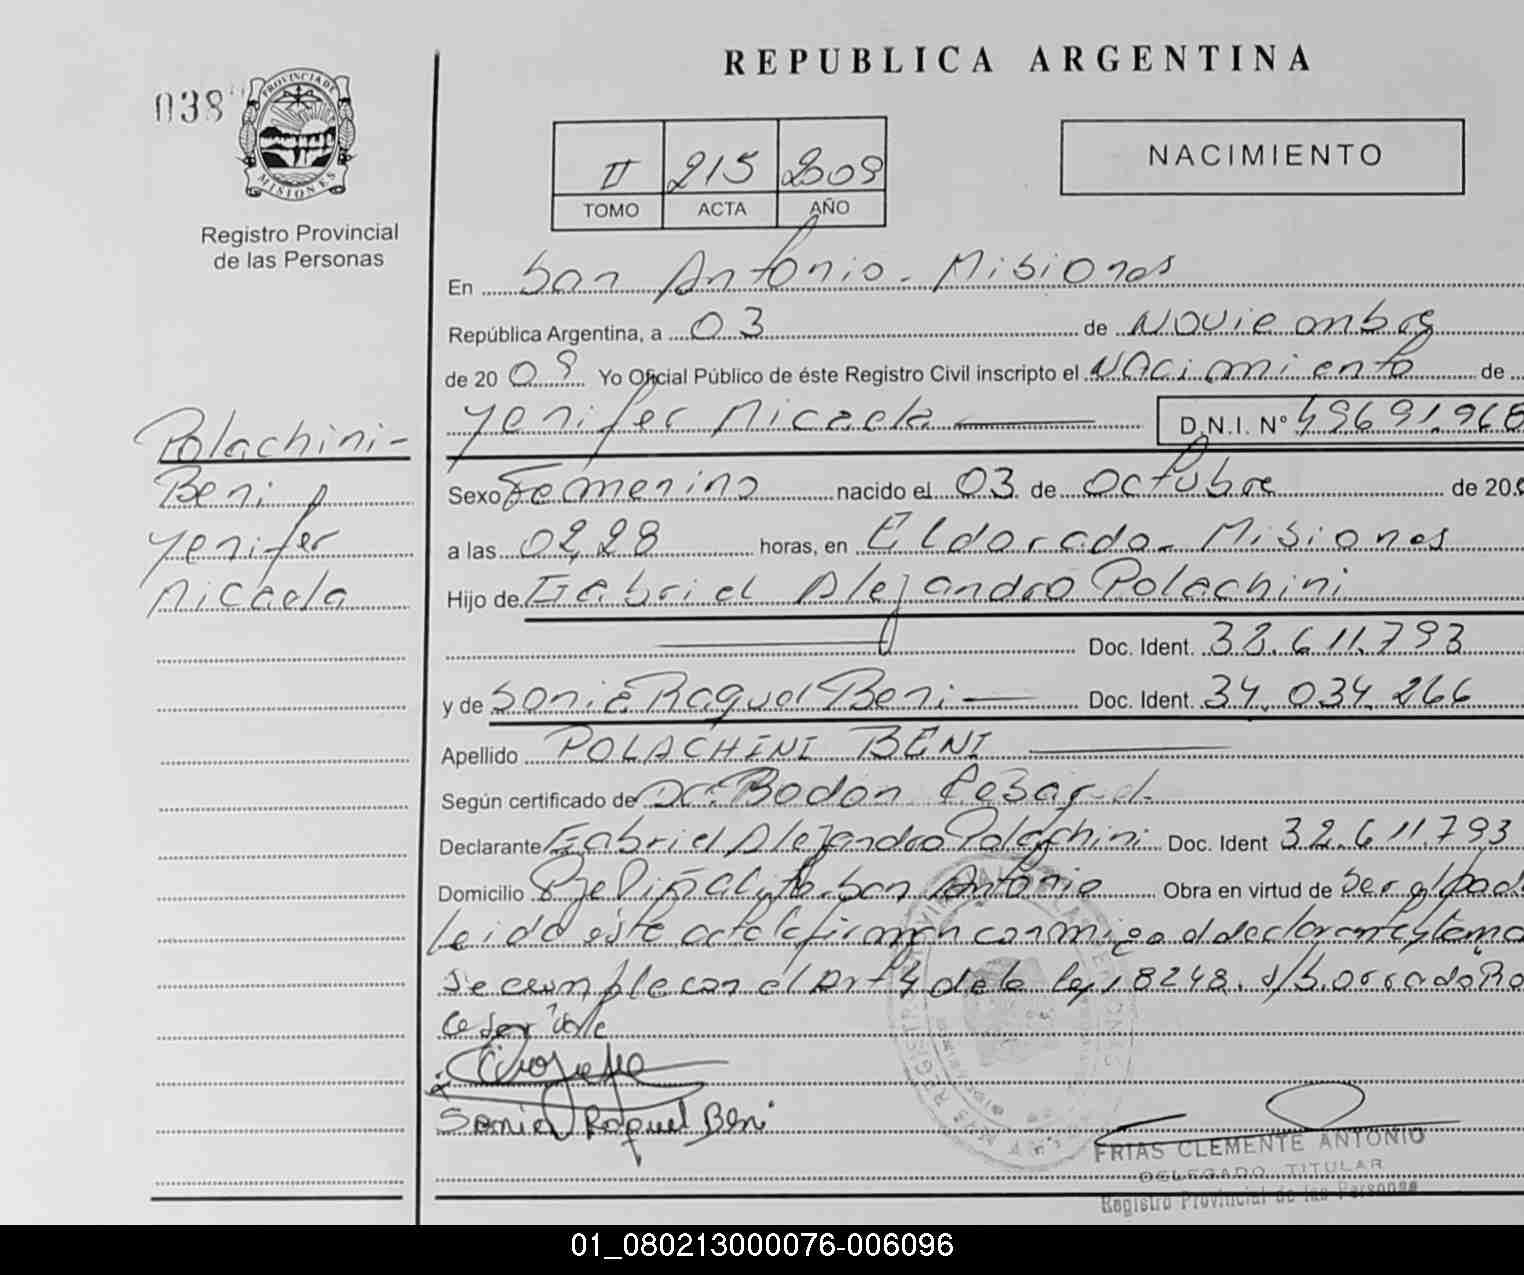 REPUBLICA ARGENTINA
038
PROVINCIA DE
MISIONES
Registro Provincial
de las Personas
II 215 2009
TOMO ACTA AÑO
NACIMIENTO
En San Antonio - Misiones
República Argentina, a 03 de Noviembre
de 20 09 Yo Oficial Público de éste Registro Civil inscripto el Nacimiento de
Yenifer Micaela D.N.I. Nº 49691.968
Polachini-
Beni
Yenifer
Micaela
Sexo Femenino nacido el 03 de Octubre de 20
a las 02,28 horas, en Eldorado - Misiones
Hijo de Gabriel Alejandro Polachini
Doc. Ident. 32.611.793
y de Sonia Raquel Beni Doc. Ident. 34.034.266
Apellido POLACHINI BENI
Según certificado de Dr. Bodon
Declarante Gabriel Alejandro Polachini Doc. Ident 32.611.793
Domicilio San Antonio Obra en virtud de Ser el Pad
Leida este acta la firman conmigo el declarante y la ma
Se cumple con el Art 4 de la ley 18248. S/B.orrado
Sonia Raquel Beni
FRIAS CLEMENTE ANTONIO
DELEGADO TITULAR
Registro Provincial de las Personas
01_080213000076-006096